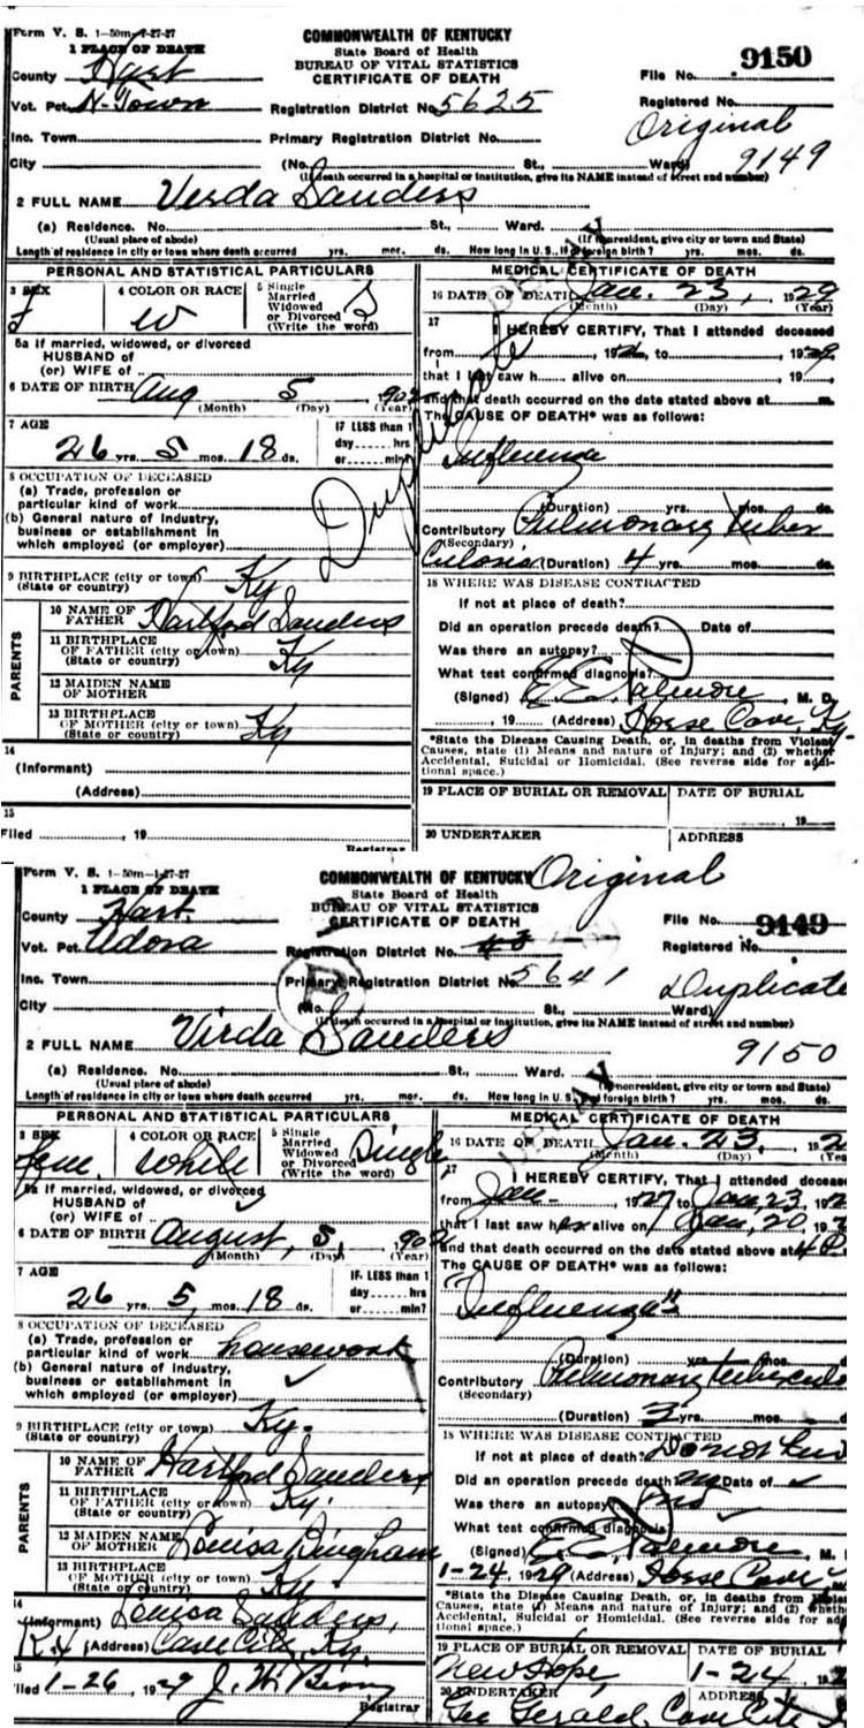 Form V. S. 1-50m-7-27-27
COMMONWEALTH OF KENTUCKY
State Board of Health
BUREAU OF VITAL STATISTICS
CERTIFICATE OF DEATH
1 PLACE OF DEATH
County Hart
File No. 9150
Vot. Pct. N-Town
Registration District No. 5625
Registered No.
Original
Inc. Town
Primary Registration District No.
City
(No. St., Ward) 9149
(If death occurred in a hospital or institution, give its NAME instead of street and number)
2 FULL NAME Verda Sanders
(a) Residence. No. St., Ward.
(Usual place of abode) (If nonresident, give city or town and State)
Length of residence in city or town where death occurred yrs. mos. ds. How long in U. S., if of foreign birth? yrs. mos. ds.
Duplicate
PERSONAL AND STATISTICAL PARTICULARS
3 SEX F
4 COLOR OR RACE W
5 Single Married Widowed or Divorced (Write the word) S
5a If married, widowed, or divorced
HUSBAND of
(or) WIFE of
6 DATE OF BIRTH Aug 5, 902
(Month) (Day) (Year)
7 AGE
26 yrs. 5 mos. 18 ds.
If LESS than 1
day hrs
or min
8 OCCUPATION OF DECEASED
(a) Trade, profession or
particular kind of work
(b) General nature of industry,
business or establishment in
which employed (or employer)
9 BIRTHPLACE (city or town) Ky
(State or country)
PARENTS
10 NAME OF FATHER Hartford Sanders
11 BIRTHPLACE
OF FATHER (city or town) Ky
(State or country)
12 MAIDEN NAME
OF MOTHER
13 BIRTHPLACE
OF MOTHER (city or town) Ky
(State or country)
14
(Informant)
(Address)
15
Filed , 19
Registrar
MEDICAL CERTIFICATE OF DEATH
16 DATE OF DEATH Jan. 23, 1929
(Month) (Day) (Year)
17
I HEREBY CERTIFY, That I attended deceased
from , 19 , to , 1929
that I last saw h alive on , 19
and that death occurred on the date stated above at m.
The CAUSE OF DEATH* was as follows:
Influenza
(Duration) yrs. mos. ds.
Contributory Pulmonary Tuber
(Secondary)
culosis (Duration) 4 yrs. mos. ds.
18 WHERE WAS DISEASE CONTRACTED
If not at place of death?
Did an operation precede death? Date of
Was there an autopsy?
What test confirmed diagnosis?
(Signed) E. E. Palmore, M. D.
, 19 (Address) Horse Cave, Ky.
*State the Disease Causing Death, or, in deaths from Violent
Causes, state (1) Means and nature of Injury; and (2) whether
Accidental, Suicidal or Homicidal. (See reverse side for addi-
tional space.)
19 PLACE OF BURIAL OR REMOVAL
DATE OF BURIAL
19
20 UNDERTAKER
ADDRESS
Form V. S. 1-50m-1-27-27
COMMONWEALTH OF KENTUCKY Original
State Board of Health
BUREAU OF VITAL STATISTICS
CERTIFICATE OF DEATH
1 PLACE OF DEATH
County Hart
File No. 9149
Vot. Pct. Udora
Registration District No.
Registered No.
Inc. Town
Primary Registration District No. 5641
Duplicate
City
(No. St., Ward)
(If death occurred in a hospital or institution, give its NAME instead of street and number)
2 FULL NAME Virda Sanders
9150
(a) Residence. No. St., Ward.
(Usual place of abode) (If nonresident, give city or town and State)
Length of residence in city or town where death occurred yrs. mos. ds. How long in U. S., if of foreign birth? yrs. mos. ds.
PERSONAL AND STATISTICAL PARTICULARS
3 SEX Fem.
4 COLOR OR RACE White
5 Single Married Widowed or Divorced (Write the word) Single
5a If married, widowed, or divorced
HUSBAND of
(or) WIFE of
6 DATE OF BIRTH August, 5, 902
(Month) (Day) (Year)
7 AGE
26 yrs. 5 mos. 18 ds.
IF LESS than 1
day hrs
or min?
8 OCCUPATION OF DECEASED
(a) Trade, profession or
particular kind of work housework
(b) General nature of industry,
business or establishment in
which employed (or employer)
9 BIRTHPLACE (city or town) Ky.
(State or country)
PARENTS
10 NAME OF FATHER Hartford Sanders
11 BIRTHPLACE
OF FATHER (city or town) Ky.
(State or country)
12 MAIDEN NAME
OF MOTHER Louisa Bingham
13 BIRTHPLACE
OF MOTHER (city or town) Ky.
(State or country)
14
(Informant) Louisa Sanders,
(Address) Cave City, Ky.
15
Filed 1-26, 1929 J. W.
Registrar
MEDICAL CERTIFICATE OF DEATH
16 DATE OF DEATH Jan. 23, 192
(Month) (Day) (Yea
17
I HEREBY CERTIFY, That I attended deceased
from Jan- , 1927 to Jan, 23, 192
that I last saw her alive on Jan, 20, 19
and that death occurred on the date stated above at 4 P
The CAUSE OF DEATH* was as follows:
"Influenza"
(Duration) yrs. mos.
Contributory Pulmonary tubercul
(Secondary)
(Duration) 3 yrs. mos.
18 WHERE WAS DISEASE CONTRACTED
If not at place of death? Do not kno
Did an operation precede death no Date of
Was there an autopsy? no
What test confirmed diagnosis
(Signed) E. E. Palmore, M.
1-24, 1929 (Address) Horse Cave
*State the Disease Causing Death, or, in deaths from Violent
Causes, state (1) Means and nature of Injury; and (2) wheth
Accidental, Suicidal or Homicidal. (See reverse side for ad
tional space.)
19 PLACE OF BURIAL OR REMOVAL
New Hope,
DATE OF BURIAL
1-24, 192
20 UNDERTAKER
Geo Gerald,
ADDRESS
Cave City